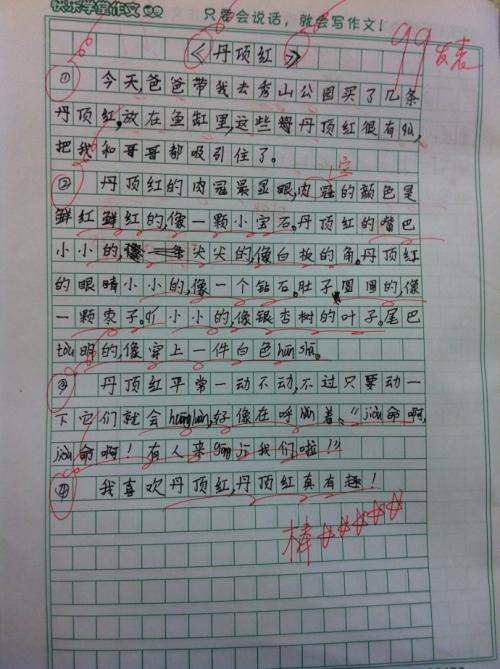 快乐学堂作文 只要会说话，就会写作文！
99 发表
《丹顶红》
① 今天爸爸带我去秀山公园买了几条
丹顶红,放在鱼缸里,这些丹顶红很有趣,
把我和哥哥都吸引住了。
② 丹顶红的肉冠最显眼,肉冠的颜色是
鲜红鲜红的,像一颗小宝石。丹顶红的嘴巴
小小的,尖尖的,像白板的角。丹顶红
的眼睛小小的,像一个钻石。肚子圆圆的,像
一颗枣子。小小的,像银杏树的叶子。尾巴
tou明的,像穿上一件白色hūn shā。
③ 丹顶红平常一动不动,不过只要动一
下它们就会,好像在呼hǎn着,“jiù命啊,
jiù命啊！有人来gōng jī我们啦!!!
④ 我喜欢丹顶红,丹顶红真有趣！
棒☆☆☆☆☆